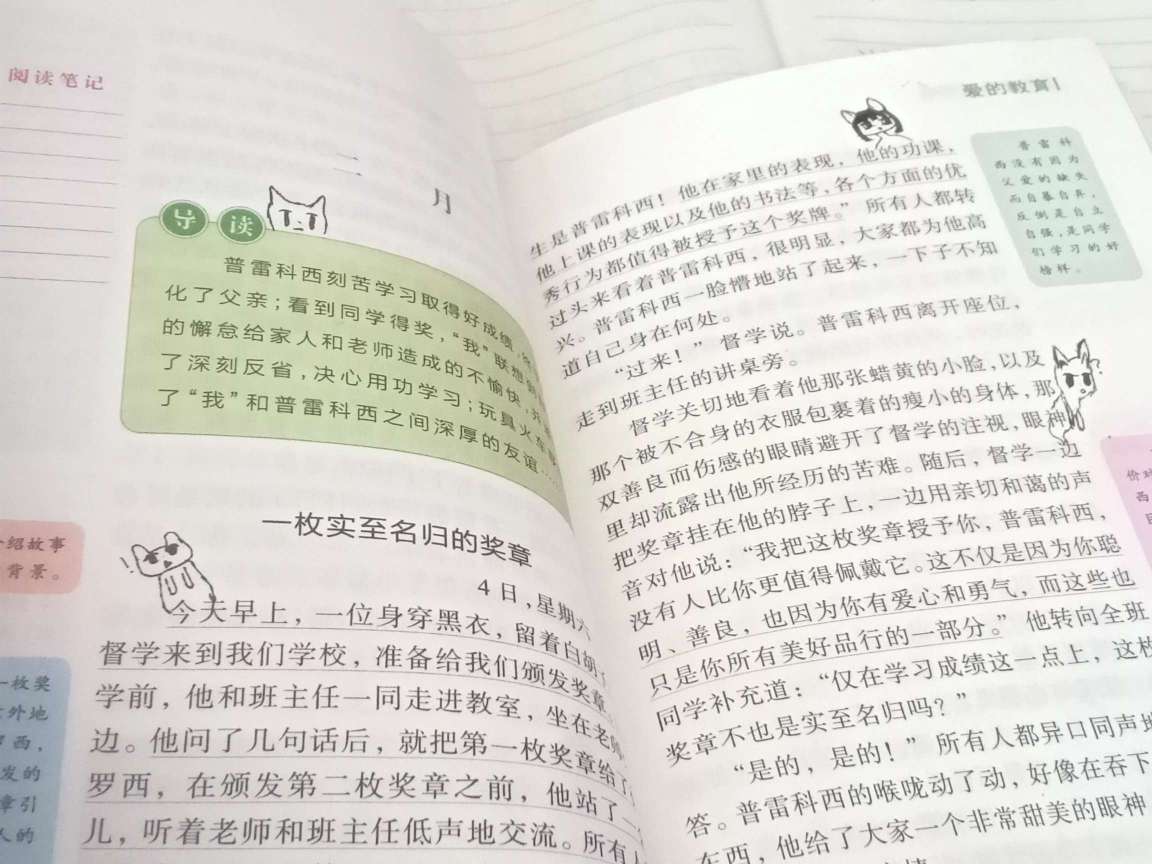 阅读笔记
二月
导读
普雷科西刻苦学习取得好成绩，
化了父亲；看到同学得奖，“我”联想
的懈怠给家人和老师造成的不愉快，
了深刻反省，决心用功学习；玩具火车
了“我”和普雷科西之间深厚的友谊……
一枚实至名归的奖章
4日，星期六
绍故事
背景。
今天早上，一位身穿黑衣，留着白胡
督学来到我们学校，准备给我们颁发奖章。
学前，他和班主任一同走进教室，坐在老师
边。他问了几句话后，就把第一枚奖章给了
罗西，在颁发第二枚奖章之前，他站了一
儿，听着老师和班主任低声地交流。所有人
一枚奖
外地
西，
发的
章引
人的
爱的教育
生是普雷科西！他在家里的表现，他的功课，
他上课的表现以及他的书法等，各个方面的优
秀行为都值得被授予这个奖牌。”所有人都转
过头来看着普雷科西，很明显，大家都为他高
兴。普雷科西一脸懵地站了起来，一下子不知
道自己身在何处。
“过来！”督学说。普雷科西离开座位，
走到班主任的讲桌旁。
督学关切地看着他那张蜡黄的小脸，以及
那个被不合身的衣服包裹着的瘦小的身体，那
双善良而伤感的眼睛避开了督学的注视，眼神
里却流露出他所经历的苦难。随后，督学一边
把奖章挂在他的脖子上，一边用亲切和蔼的声
音对他说：“我把这枚奖章授予你，普雷科西，
没有人比你更值得佩戴它。这不仅是因为你聪
明、善良，也因为你有爱心和勇气，而这些也
只是你所有美好品行的一部分。”他转向全班
同学补充道：“仅在学习成绩这一点上，这枚
奖章不也是实至名归吗？”
“是的，是的！”所有人都异口同声地
答。普雷科西的喉咙动了动，好像在吞下
东西，他给了大家一个非常甜美的眼神
普雷科
西没有因为
父爱的缺失
而自暴自弃，
反倒是自立
自强，是同学
们学习的好
榜样。
价对
西